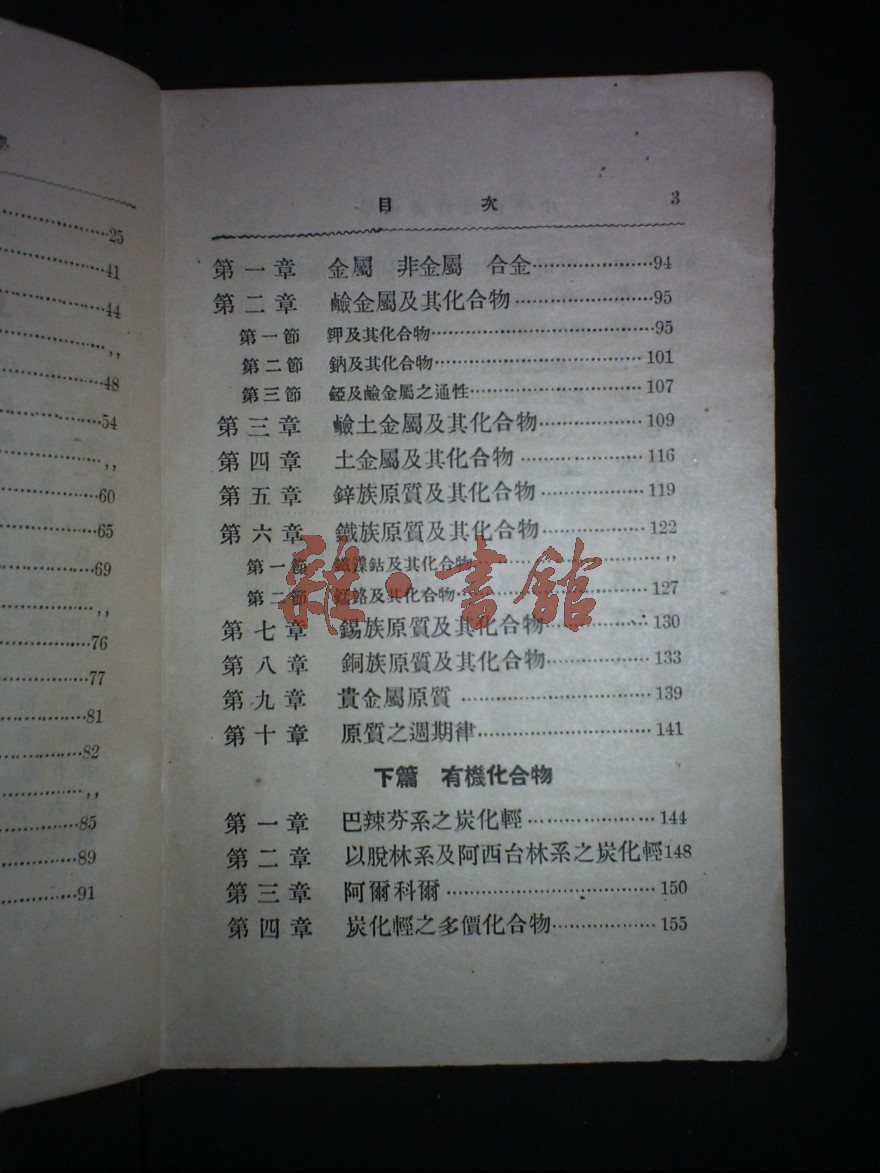 學
25
41
44
,,
48
54
,,
60
65
69
,,
76
77
81
82
,,
85
89
91
目 次 3
第一章 金屬 非金屬 合金 94
第二章 鹼金屬及其化合物 95
第一節 鉀及其化合物 95
第二節 鈉及其化合物 101
第三節 錏及鹼金屬之通性 107
第三章 鹼土金屬及其化合物 109
第四章 土金屬及其化合物 116
第五章 鋅族原質及其化合物 119
第六章 鐵族原質及其化合物 122
第一節 鐵鎳鈷及其化合物 ,,
第二節 鉻及其化合物 127
第七章 錫族原質及其化合物 130
第八章 銅族原質及其化合物 133
第九章 貴金屬原質 139
第十章 原質之週期律 141
下篇 有機化合物
第一章 巴辣芬系之炭化輕 144
第二章 以脫林系及阿西台林系之炭化輕148
第三章 阿爾科爾 150
第四章 炭化輕之多價化合物 155
雜·書館